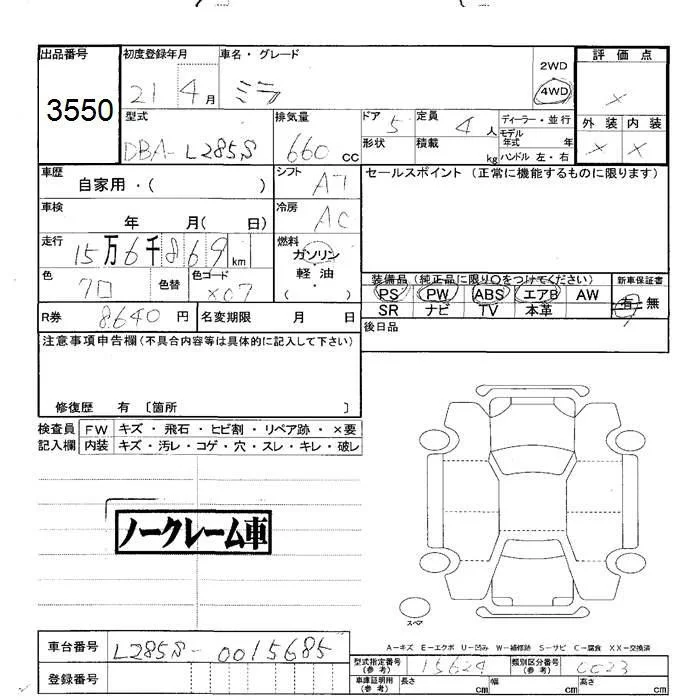 出品番号 初度登録年月 車名・グレード 2WD 評価点
3550 21 4月 ミラ 4WD ×
型式 排気量 ドア 5 定員 4人 ディーラー・並行 外装 内装
DBA-L285S 660cc 形状 積載 kg モデル年式 年 × ×
ハンドル 左・右
車歴 シフト AT セールスポイント (正常に機能するものに限ります)
自家用・( )
車検 冷房 AC
年 月( 日)
走行 15万6千869km 燃料
ガソリン
軽油・
( )
色 クロ 色替 色コード X07
装備品 (純正品に限り○をつけてください) 新車保証書
PS PW ABS エアB AW 有・無
SR ナビ TV 本革
R券 8.640円 名変期限 月 日
後日品
注意事項申告欄(不具合内容等は具体的に記入して下さい)
修復歴 有 〔箇所 〕
検査員 FW キズ・飛石・ヒビ割・リペア跡・×要
記入欄 内装 キズ・汚レ・コゲ・穴・スレ・キレ・破レ
ノークレーム車
スペア
車台番号 L285S-0015685
A-キズ E-エクボ U-凹み W-補修跡 S-サビ C-腐食 XX-交換済
型式指定番号(参考) 15624 類別区分番号(参考) 0023
登録番号
車庫証明用(参考) 長さ cm 幅 cm 高さ cm